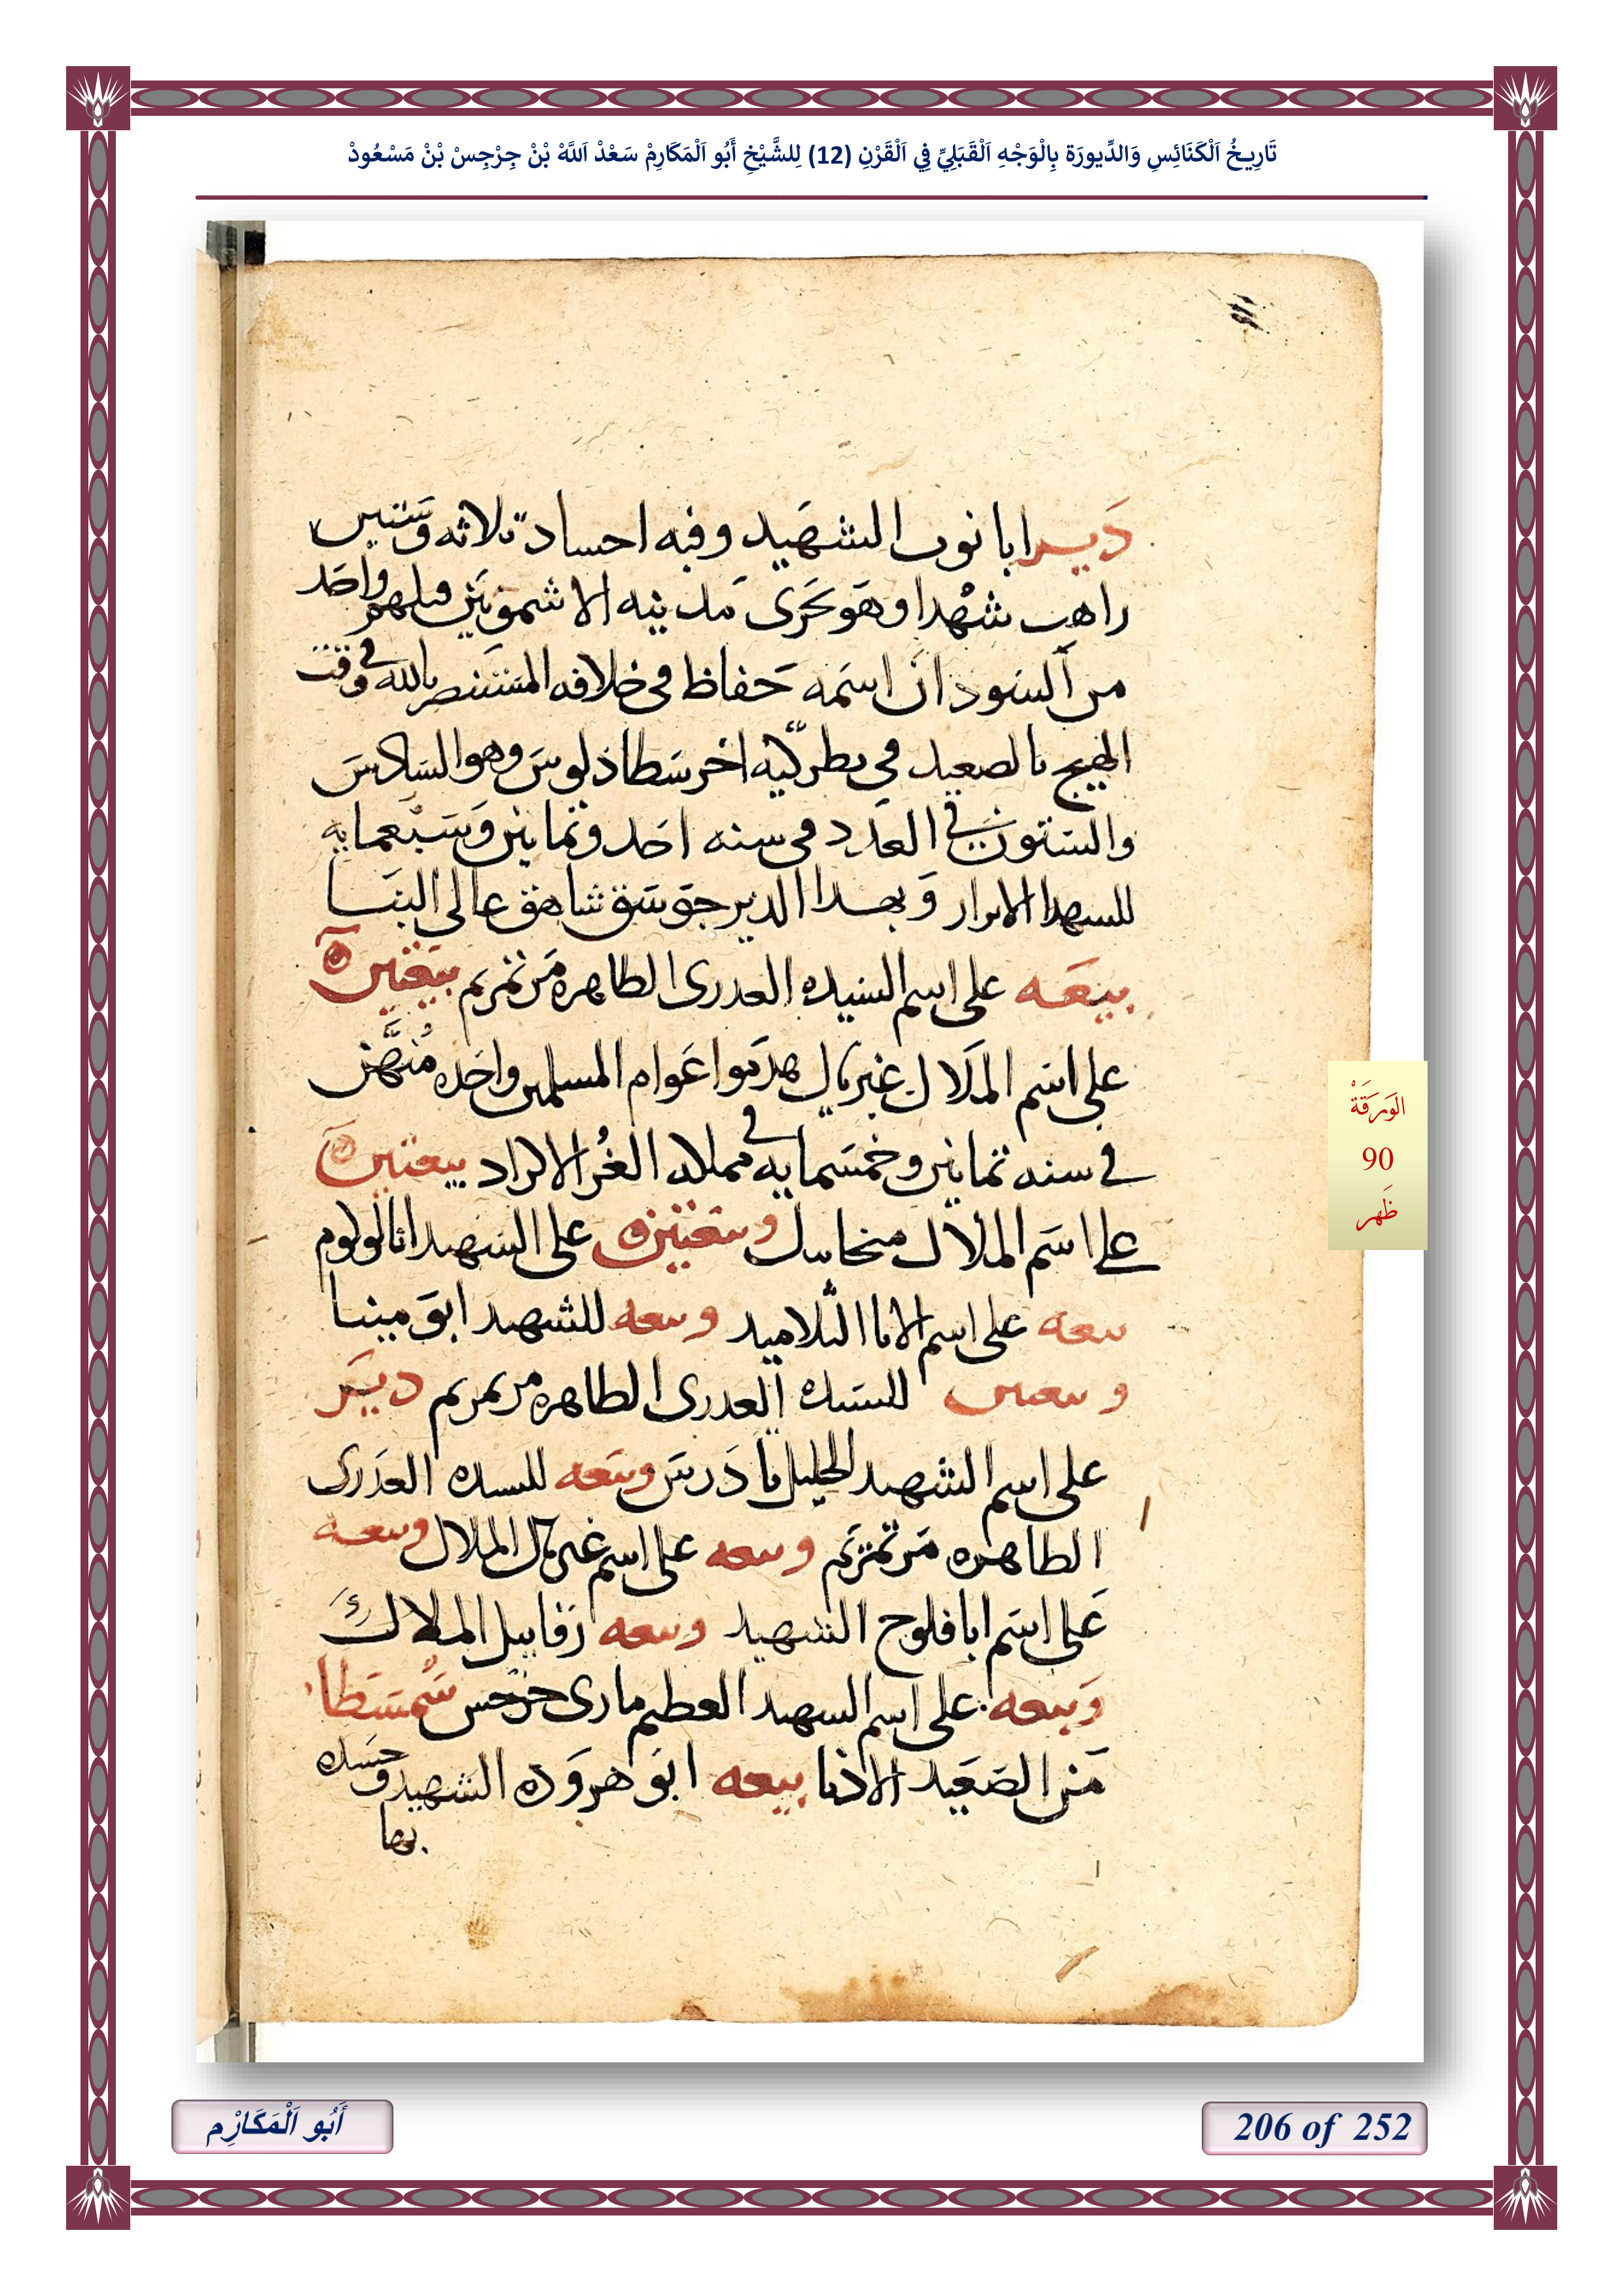 تَارِيخُ اَلْكَنَائِسِ وَالدِّيورَة بِالْوَجْهِ اَلْقَبَلِيِّ فِي اَلْقَرْنِ (12) لِلشَّيْخِ أَبُو اَلْمَكَارِمْ سَعْدْ اَللَّهْ بْنْ جِرْجِسْ بْنْ مَسْعُودْ
دير ابا نوب الشهيد وفيه احساد ثلاثه وستين
راهب شهدا وهو بحرى مدينه الاشمونين قتلهم واحد
من السودان اسمه حفاظ فى خلافه المستنصر بالله فى وقت
الهيج بالصعيد فى بطركيه اخرسطاذلوس وهو السادس
والستون فى العدد فى سنه احد وثمانين وسبعمايه
للسهدا الابرار وبهدا الدير جوسق شاهق عالى البنا
بيعه على اسم السيده العدرى الطاهره مرتمريم بيعتين
على اسم الملاك غبريال هدموا عوام المسلمين واحده منهن
فى سنه ثمانين وخمسمايه فى مملكه الغز الاكراد بيعتين
على اسم الملاك ميخاييل وبيعتين على الشهيد
بيعه على اسم الابا التلاميد وبيعه للشهيد ابو مينا
وبيعتين للسيده العدرى الطاهره مرتمريم دير
على اسم الشهيد الجليل تادرس وبيعه للسيده العدرى
الطاهره مرتمريم وبيعه على اسم غبريال الملاك وبيعه
على اسم ابا فلوح الشهيد وبيعه رفاييل الملاك
وبيعه على اسم السهيد العظيم مارى جرجس سمسطا
من الصعيد الادنا بيعه ابو هروده الشهيد وجسده
بها
الوَرَقَةْ
90
ظَهر
أَبُو اَلْمَكَارِْم
206 of 252